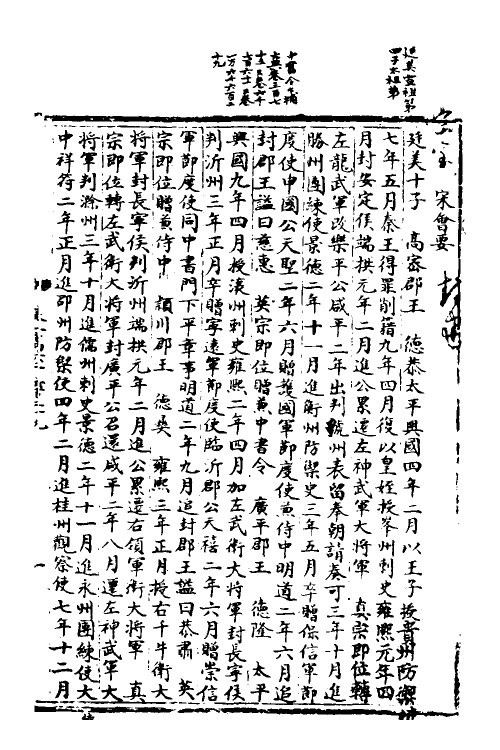 廷美宣祖第
四子太祖弟
宋會要
廷美十子　高密郡王　德恭太平興國四年二月以王子授貴州防禦使
七年五月秦王得罪削籍九年四月復以皇姪授峯州刺史雍熙元年四
月封安定侯端拱元年二月進公累遷左神武軍大將軍　真宗即位轉
左龍武軍改樂平公咸平二年出判虢州表留奉朝請奏可三年十月進
勝州團練使景德二年十一月進衡州防禦史三年五月卒贈保信軍節
度使申國公天聖二年六月贈護國軍節度使兼侍中明道二年六月追
封郡王諡曰慈惠　英宗即位贈兼中書令　廣平郡王　德隆　太平
興國九年四月授瀼州刺史雍熙二年四月加左武衛大將軍封長寧侯
判沂州三年正月卒贈寧遠軍節度使臨沂郡公天禧二年六月贈崇信
軍節度使同中書門下平章事明道二年九月追封郡王諡曰恭肅　英
宗即位贈兼侍中　潁川郡王　德彝　雍熙三年正月授右千牛衛大
將軍封長寧侯判沂州端拱元年二月進公累遷右領軍衛大將軍　真
宗即位轉左武衛大將軍封廣平公召還咸平二年八月遷左神武軍大
將軍判滁州三年十月進儒州刺史景德二年十一月進永州團練使大
中祥符二年正月進邵州防禦使四年二月進桂州觀察使七年十二月